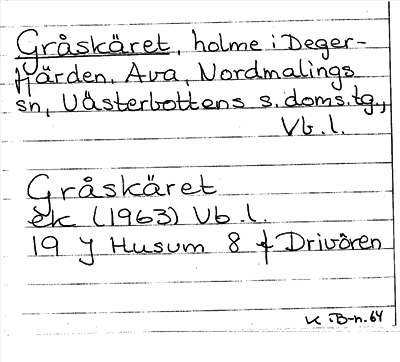 Gråskäret, holme i Deger-
fjärden. Ava, Nordmalings
sn, Västerbottens s. doms.tg.,
Vb. l.
Gråskäret
ek (1963) Vb. l.
19 J Husum 8 f Drivören
K. B-n. 64